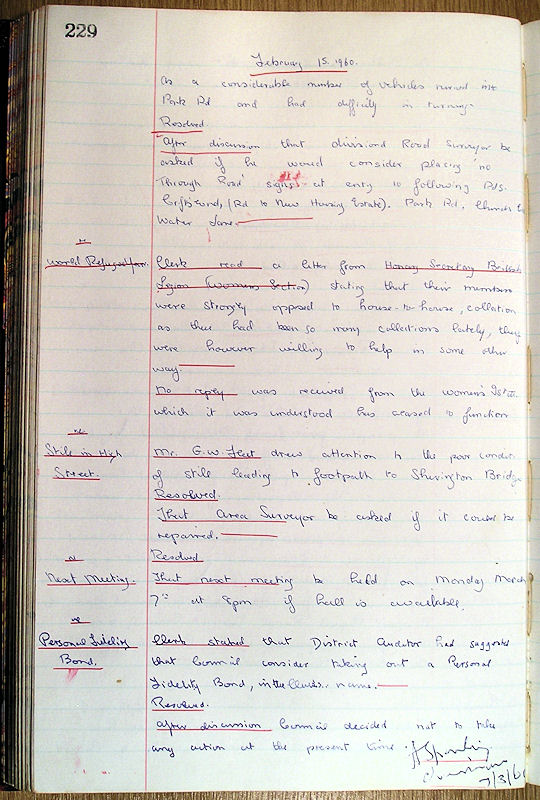 229
February 1st 1960.
As a considerable number of vehicles turned into
Park Rd and had difficulty in turning.
Resolved
After discussion that divisional Road Surveyor be
asked if he would consider placing 'no
Through Road' signs at entry to following Rds.
(Rd to New Housing Estate). Park Rd, Church
Water Lane.
re
World Refugee Year.
Clerk read a letter from Honary Secretary British
Legion (Womens Section) stating that their members
were strongly opposed to house-to-house, collection
as there had been so many collections lately, they
were however willing to help in some other
way.
No reply was received from the women's Inst.
which it was understood has ceased to function
re
Stile in High
Street.
Mr. G.W. Fleet drew attention to the poor condition
of stile leading to footpath to Sherington Bridge
Resolved.
That area Surveyor be asked if it could be
repaired.
Resolved
re
Next Meeting.
That next meeting be held on Monday March
7th at 8pm if hall is available.
re
Personal Fidelity
Bond.
Clerk stated that District Auditor had suggested
that Council consider taking out a Personal
Fidelity Bond, in the Clerks name.
Resolved.
After discussion Council decided not to take
any action at the present time.
Chairman
7/3/60